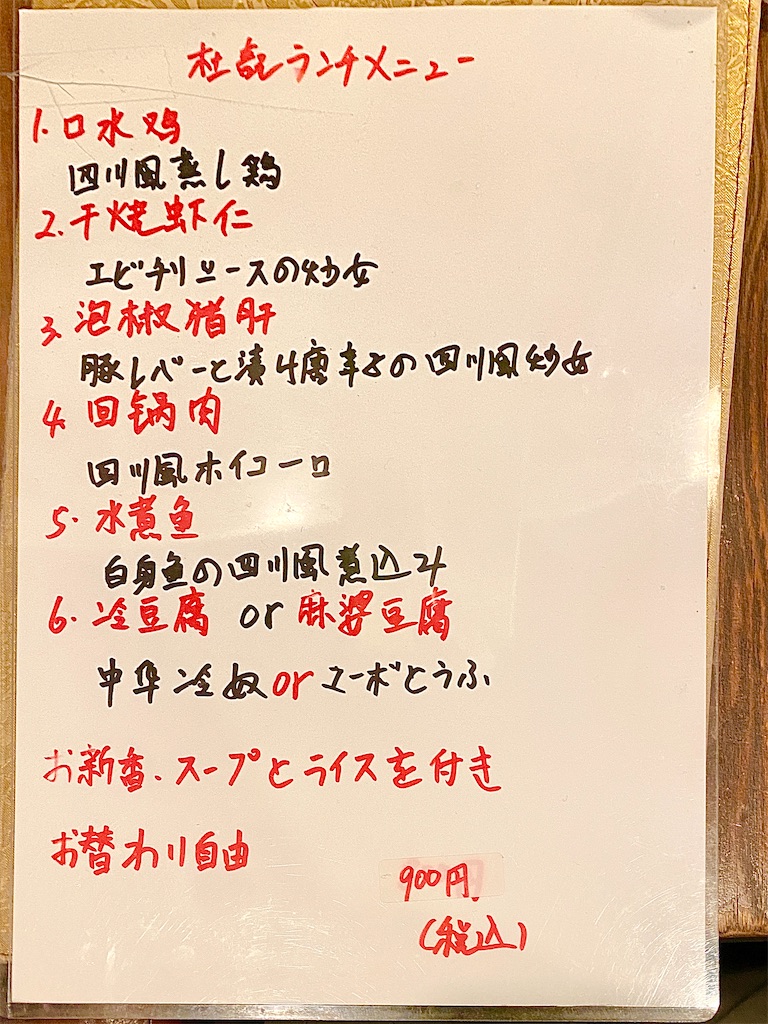 杜記ランチメニュー
1. 口水鸡
四川風蒸し鶏
2. 干烧虾仁
エビチリソースの炒め
3. 泡椒猪肝
豚レバーと漬け唐辛子の四川風炒め
4. 回锅肉
四川風ホイコーロ
5. 水煮鱼
白身魚の四川風煮込み
6. 冷豆腐 or 麻婆豆腐
中華冷奴orマーボとうふ
お新香、スープとライスを付き
お替わり自由
900円
(税込)